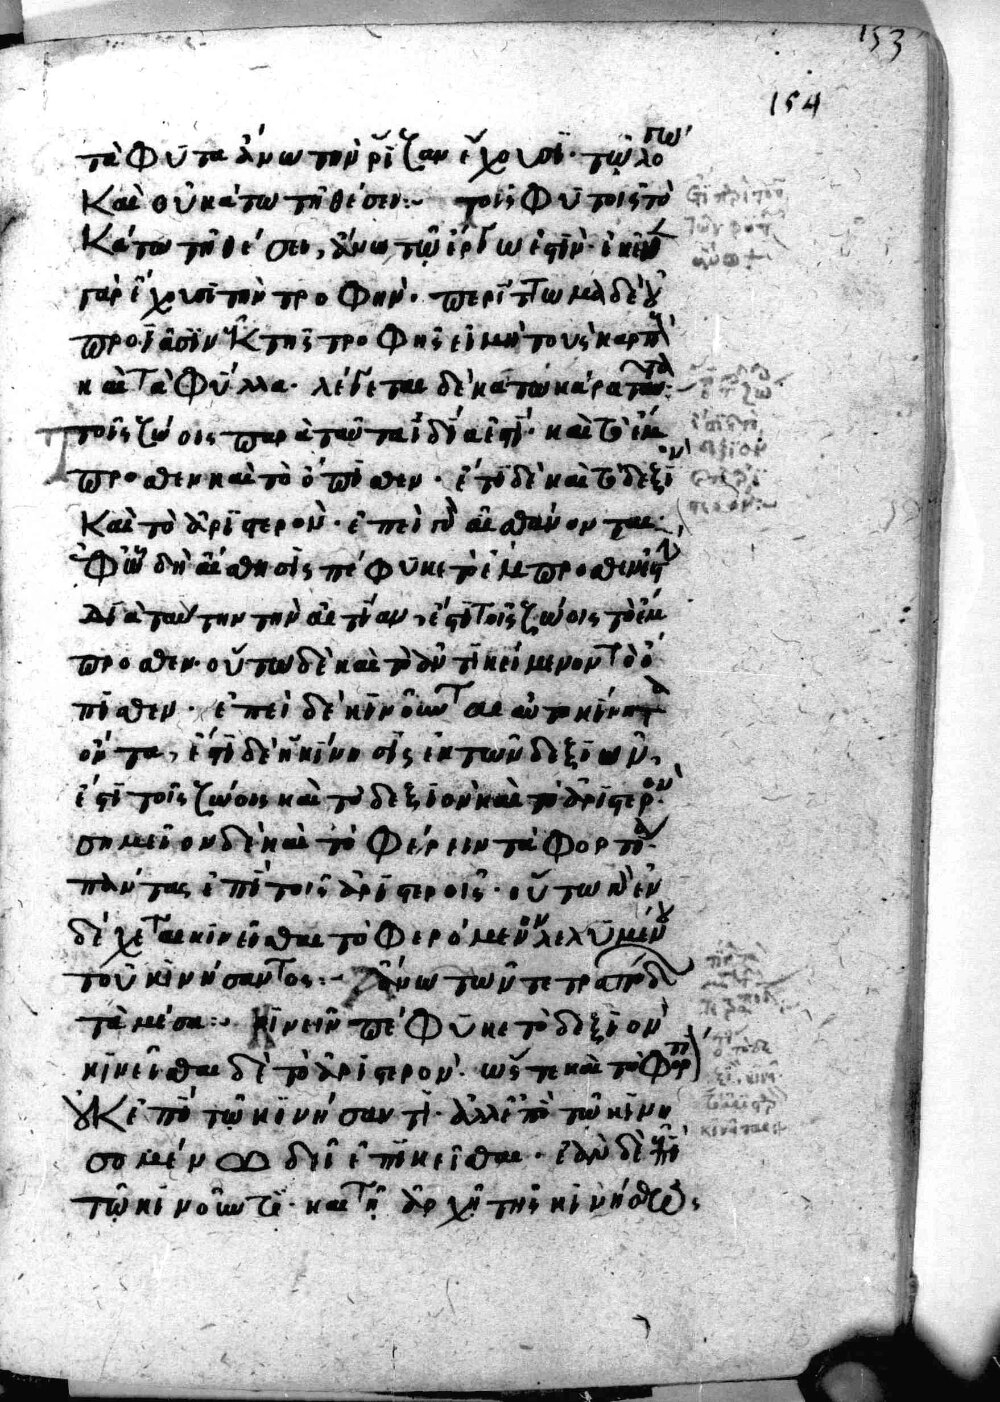 153
154
τὰ φῦτα ἄνω τὴν ῥίζαν ἔχουσι· τῷ λόπω
καὶ οὐ κάτω τῇ θέσει:~ τοῖς φυτοῖς τὸ
κάτω τῇ θέσει, ἄνω τῷ ἔργω ἐστὶν· ἐκεῖ
γὰρ ἔχουσι τὴν τροφήν· περίττωμα δὲ οὐ
προϊᾶσιν ἐκ τῆς τροφῆς εἰ μὴ τοὺς καρποὺς
καὶ τὰ φύλλα· λέγεται δὲ κάτω κάρα
τοῖς ζώοις παρὰ ταῦτα ἰδία ἐστὶ· καὶ τὸ ἔμ
προσθεν καὶ τὸ ὄπισθεν· ἔτι δὲ καὶ τὸ δεξιὸν
καὶ τὸ ἀριστερὸν· ἐπεὶ οὖν αἰσθάνονται,
ἐφ' ᾧ δὴ αἴσθησις πέφυκε τὸ ἔμπροσθεν ἐστὶ
διὰ ταύτην τὴν αἰτίαν, ἐστὶ τοῖς ζώοις τὸ ἔμ
προσθεν· οὕτω δὲ καὶ τὸ ἀντικείμενον τὸ ὄ
πισθεν· ἐπεὶ δὲ κινοῦνται αὐτοκίνητα
ὄντα, ἔστι δὲ ἡ κίνησις ἐκ τῶν δεξιῶν,
ἐστὶ τοῖς ζώοις καὶ τὸ δεξιὸν καὶ τὸ ἀριστερόν·
σημεῖον δὲ καὶ τὸ φέρειν τὰ φορτία
πάντας ἐπὶ τοῖς ἀριστεροῖς· οὕτω γὰρ ἐν
δέχεται κινεῖσθαι τὸ φερόμενον λελυμένου
τοῦ κινήσαντος:~ ἄνω τῶν τετραπόδων
τὰ μέσα:~ κινεῖν πέφυκε τὸ δεξιὸν
κινεῖσθαι δὲ τὸ ἀριστερόν· ὥστε καὶ τὸ φορτίον
οὐκ ἐπὶ τῷ κινήσαντι· ἀλλ' ἐπὶ τῷ κινη
σομένω δεῖ ἐπικεῖσθαι· ἐὰν δὲ ἐπὶ
τῷ κινοῦντι· καὶ τῇ ἀρχῇ τῆς κινήσεως